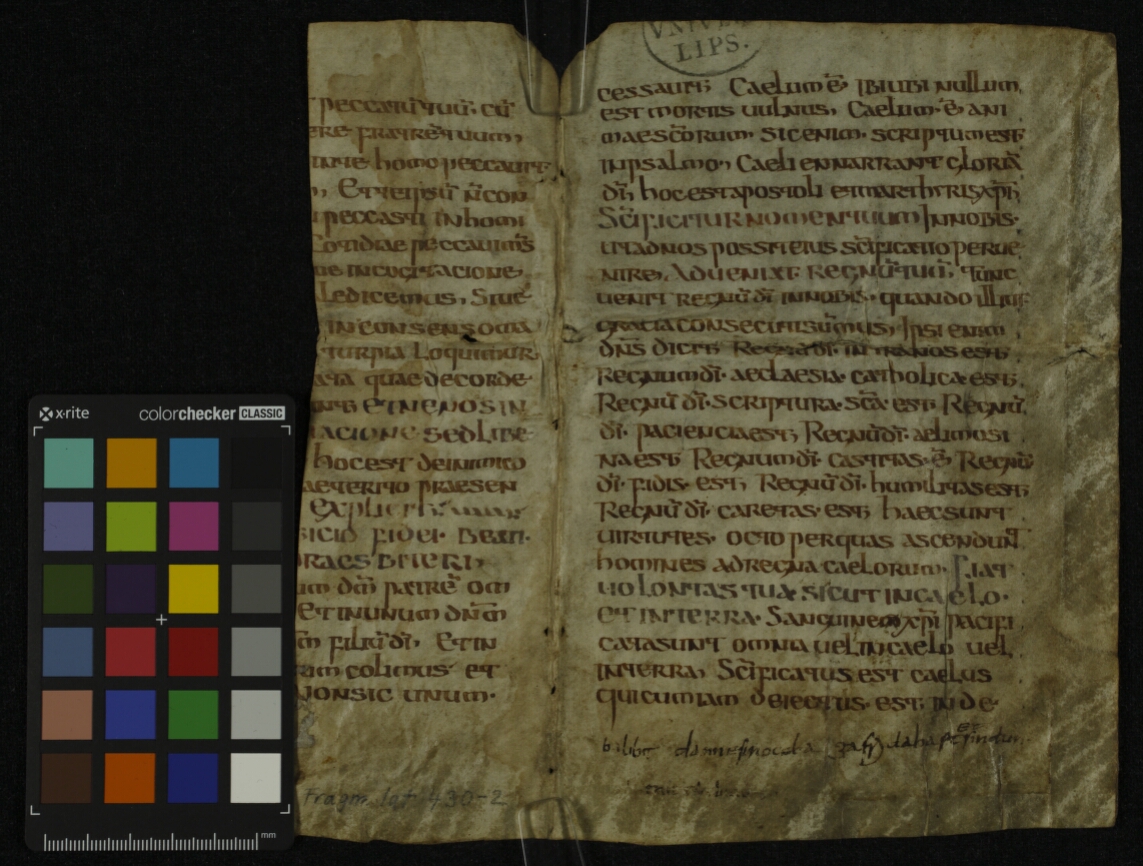 peccatū tuū. cū
ere fratrē tuum,
homo peccaurt
, Et reipsū n̄ con
peccasti in homi
Cotidiae peccauim̄s
in cogitacione
ledicemus, Siue
in consensoma
turpia Loquimur
quae decorde
et nenos in
acione sed libe
hocest deinimico
aeterito praesen
Explicit
fidei. beati.
um dm̄ patrē om
et in unum dnm̄
m̄ filiū dī. Et in
um colimus et
non sic unum.
UNIVER
LIPS.
cessauit; Caelum ē, ibi ubi nullum
est mortis uulnus, Caelum. ē, ani
mae sc̄orum. sic enim. scriptum est
in psalmo, Caeli ennarrant gloriā
dī, hoc est apostoli et marthyris xp̄i;
Sc̄ificitur nomen tuum In nobis.
ut ad nos possit eius sc̄ificatio perue
nire, Adueniat regnū tuū, tunc
uenit regnū dī in nobis. quando illius
gracia consecuti sumus, Ipsi enim
dns̄ dicit; Regnū dī. intra nos est;
Regnum dī. aeclaesia. catholica. est;
Regnū dī. scriptura. sc̄a. est; Regnū.
dī. paciencia est; Regnū dī. aelimosi
na est; Regnum dī. castitas. ē; Regnū
dī. fidis. est; Regnū dī. humilitas est;
Regnū dī. caretas. est; haec sunt
uirtutes. octo per quas ascendunt
homines ad regna caelorum. Fiat
uolontas tua sicut in caelo.
et in terra. Sanguinem xp̄i pacifi
cata sunt omnia uel in caelo uel.
in terra, Sc̄ificatus est caelus
qui cum iam deiectus. est, in de
Fragm. lat. 430-2
x-rite colorchecker CLASSIC
mm